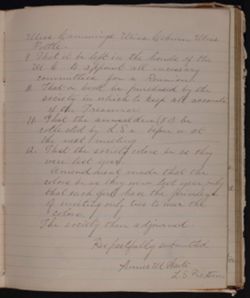 Miss Cummings Miss Osborn Miss
Potter
I. That it be left in the hands of the
M. C. to appoint all necessary
committees for a Reunion.
II. That a book be purchased by the
society in which to keep all accounts
of the Treasurer.
That the annual dues be
collected by L.S. before or at
the next meeting
That the society colors be as they
were last year.
Amendment made that the
colors be as they were last year only
that each girl has the privilege
of inventing only two to wear the
colors.
The society then adjourned
Respectfully submitted